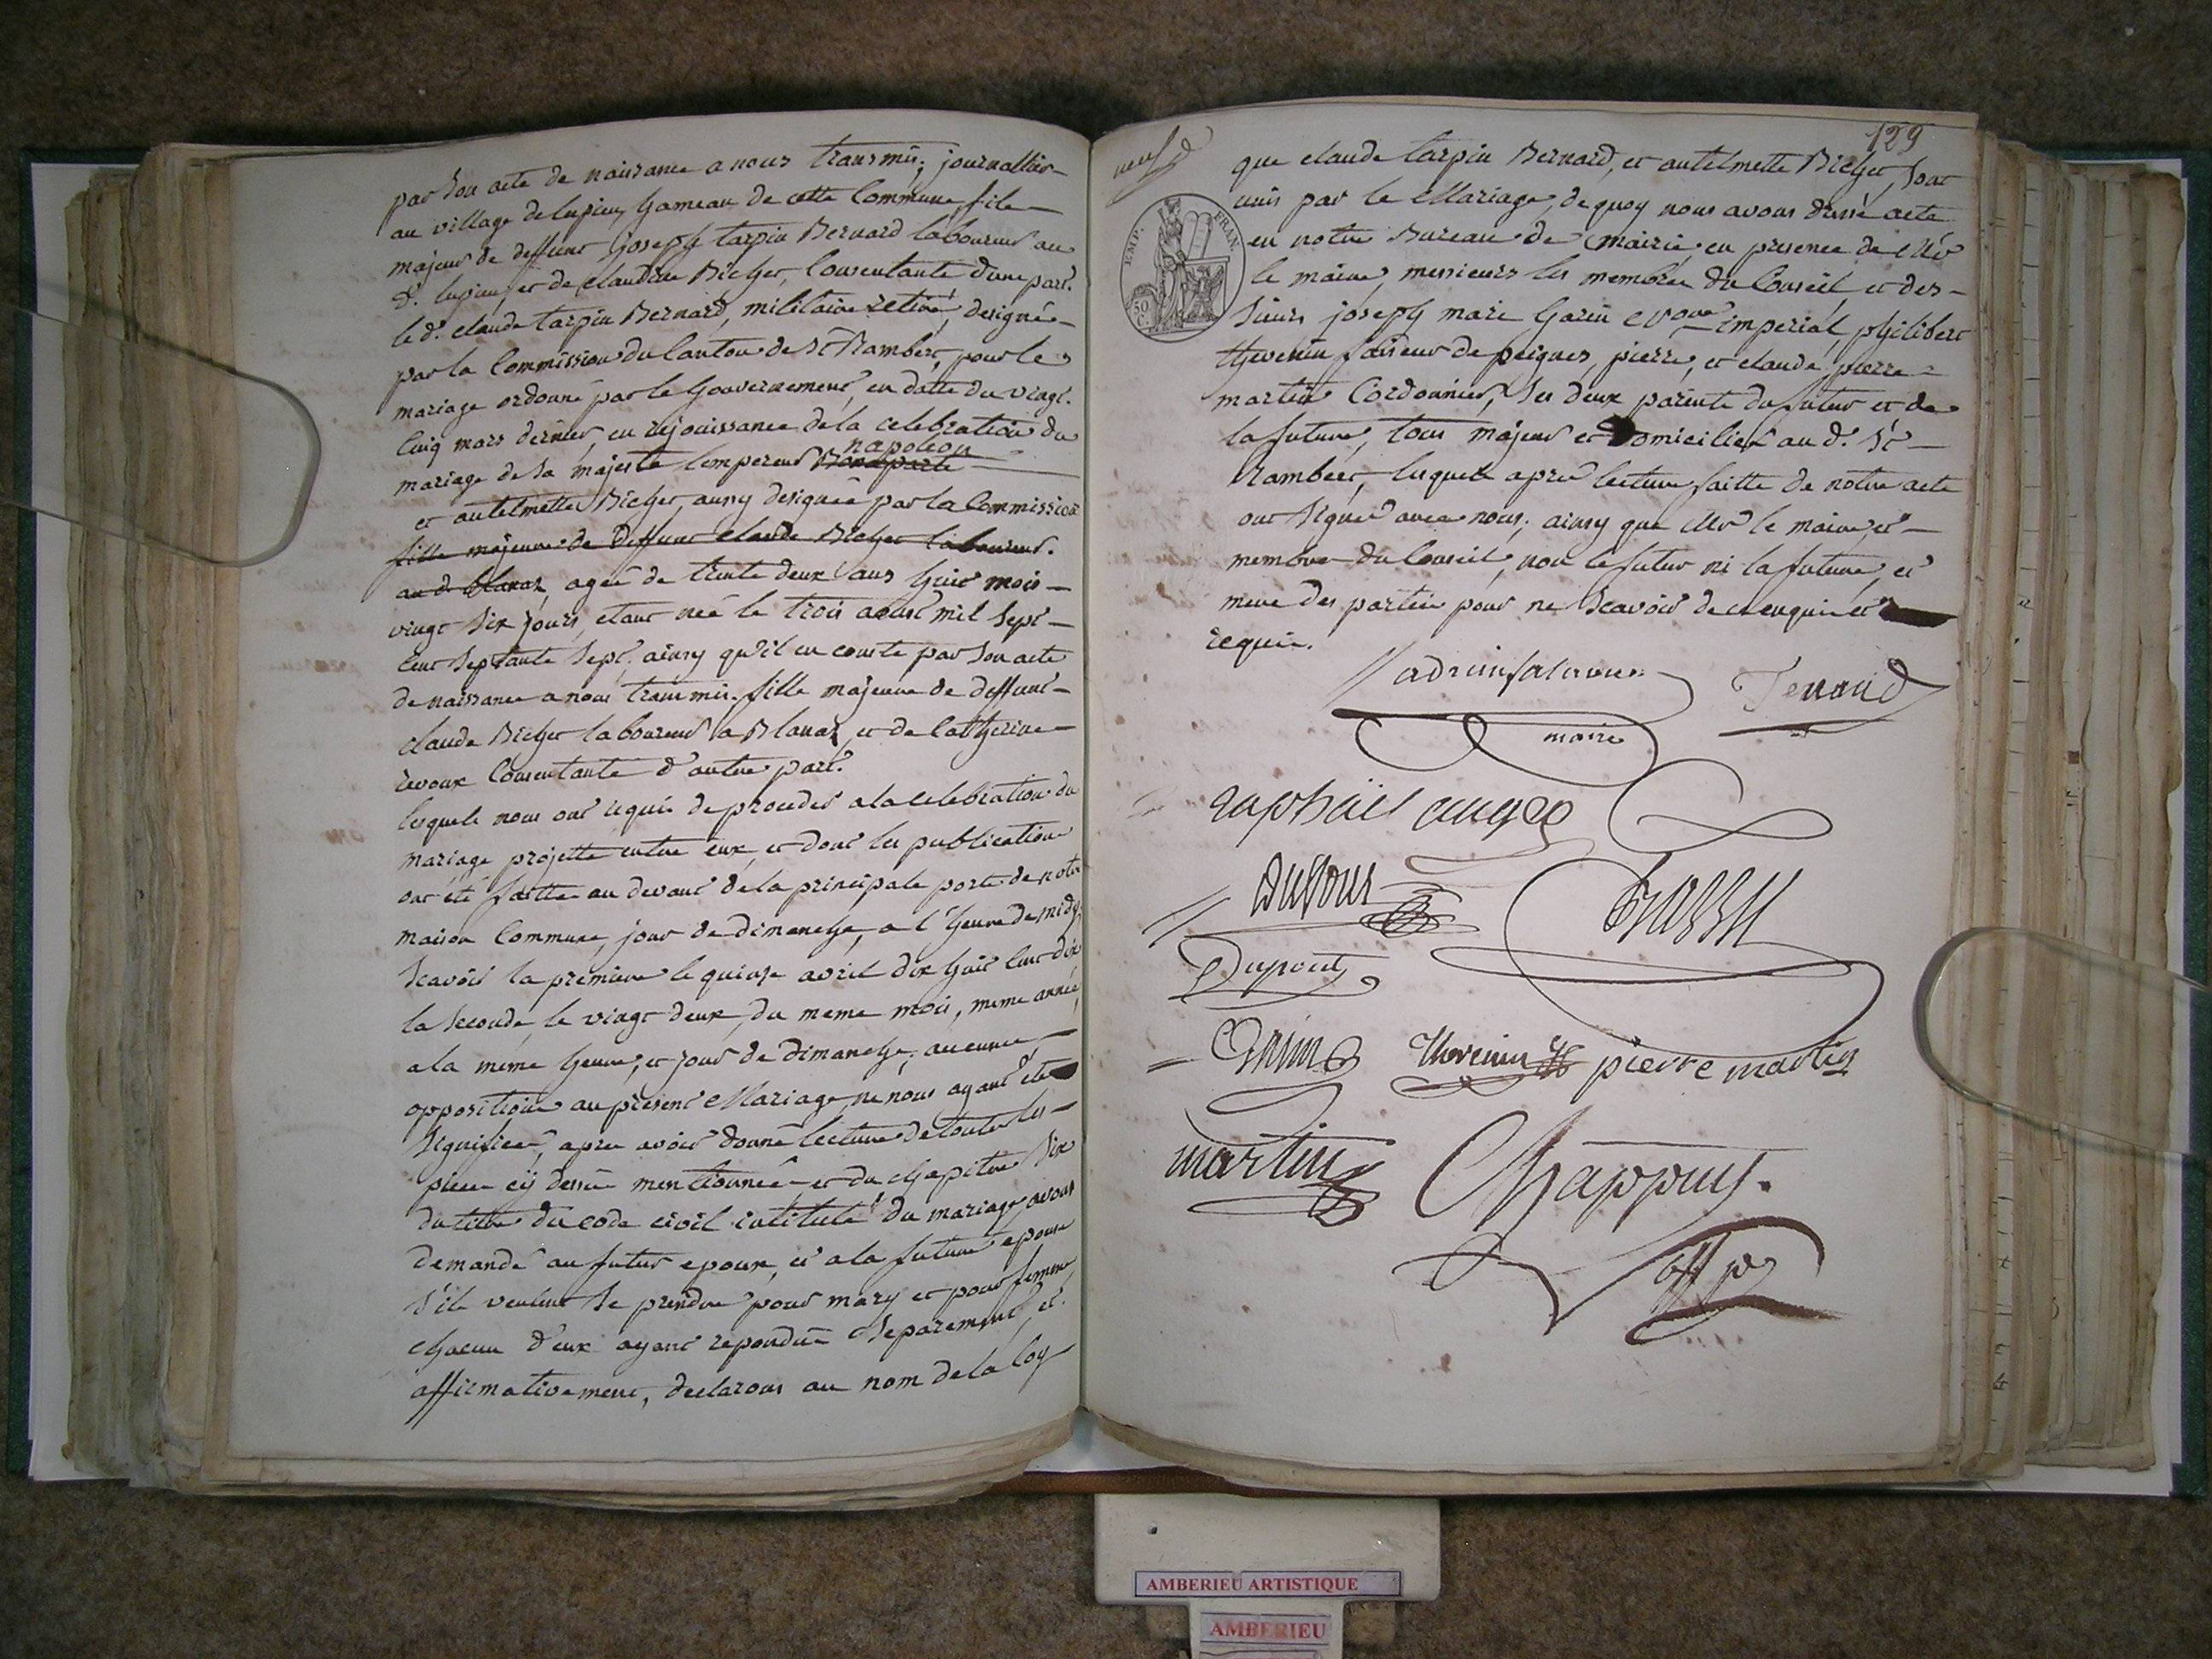 par son acte de naissance a nous transmis, journallier
au village de lupieu, hameau de cette Commune, fils
majeur de deffunt joseph tarpin Bernard laboureur au
d. lupieu, et de claudine Bicher, Consentante d'une part.
le d. claude tarpin Bernard, militaire retiré, designé
par la Commission du Canton de St Rambert, pour le
mariage ordonné par le Gouvernement, en datte du vingt
Cinq mars dernier, en rejouissance de la celebration du
napoleon
mariage de sa majesté l'empereur Bonaparte
et antelmette Bicher, aussy designée par la Commission
fille majeure de deffunt claude Bicher laboureur
au d. blanaz, agée de trente deux ans huit mois
vingt six jours, etant née le trois aoust mil sept
Cent septante sept, ainsy qu'il en conste par son acte
de naissance a nous transmis. fille majeure de deffunt
claude Bicher laboureur a Blanaz, et de Catherine
revoux Consentante d'autre part.
lesquels nous ont requis de proceder a la celebration du
mariage projetté entre eux, et dont les publications
ont été faittes au devant de la principale porte de notre
maison Commune, jour de dimanche, a l'heure de midy
scavoir la premiere le quinze avril dix huit Cent dix
la seconde le vingt deux, du meme mois, meme année
a la meme heure, et jour de dimanche, aucune
opposition au present Mariage ne nous ayant été
signifiée, apres avoir donné lecture de toutes les
pieces cy dessus mentionnées et du chapitre six
du titre du code civil intitulé du mariage, avons
demandé au futur epoux, et a la future epouse
s'ils veulent se prendre pour mary et pour femme
chacun d'eux ayant repondu separement, et
affirmativement, declarons au nom de la loy
129
neuf
que claude tarpin Bernard, et antelmette Bicher, sont
unis par le Mariage, de quoy nous avons dressé acte
EMP. FRAN.
50 C.
en notre Bureau de mairie, en presence de Mr
le maire, messieurs les membres du Conseil et des
sieurs joseph marie Garin imperial, philibert
thevenin faiseur de peignes, pierre, et claude pierre
martin Cordonnier, les deux parents du futur et de
la future, tous majeurs et domiciliés au d. St
Rambert, lesquels apres lecture faitte de notre acte
ont signé avec nous, ainsy que Mr le maire, et
membres du Conseil, non le futur ni la future, et
mere des parties pour ne scavoir de ce enquis et
requis.
maire
Tenand
raphaël auger
Dufour
Dupont
Garin
thevenin
pierre martin
martin
Chappuy.
AMBERIEU ARTISTIQUE
AMBERIEU